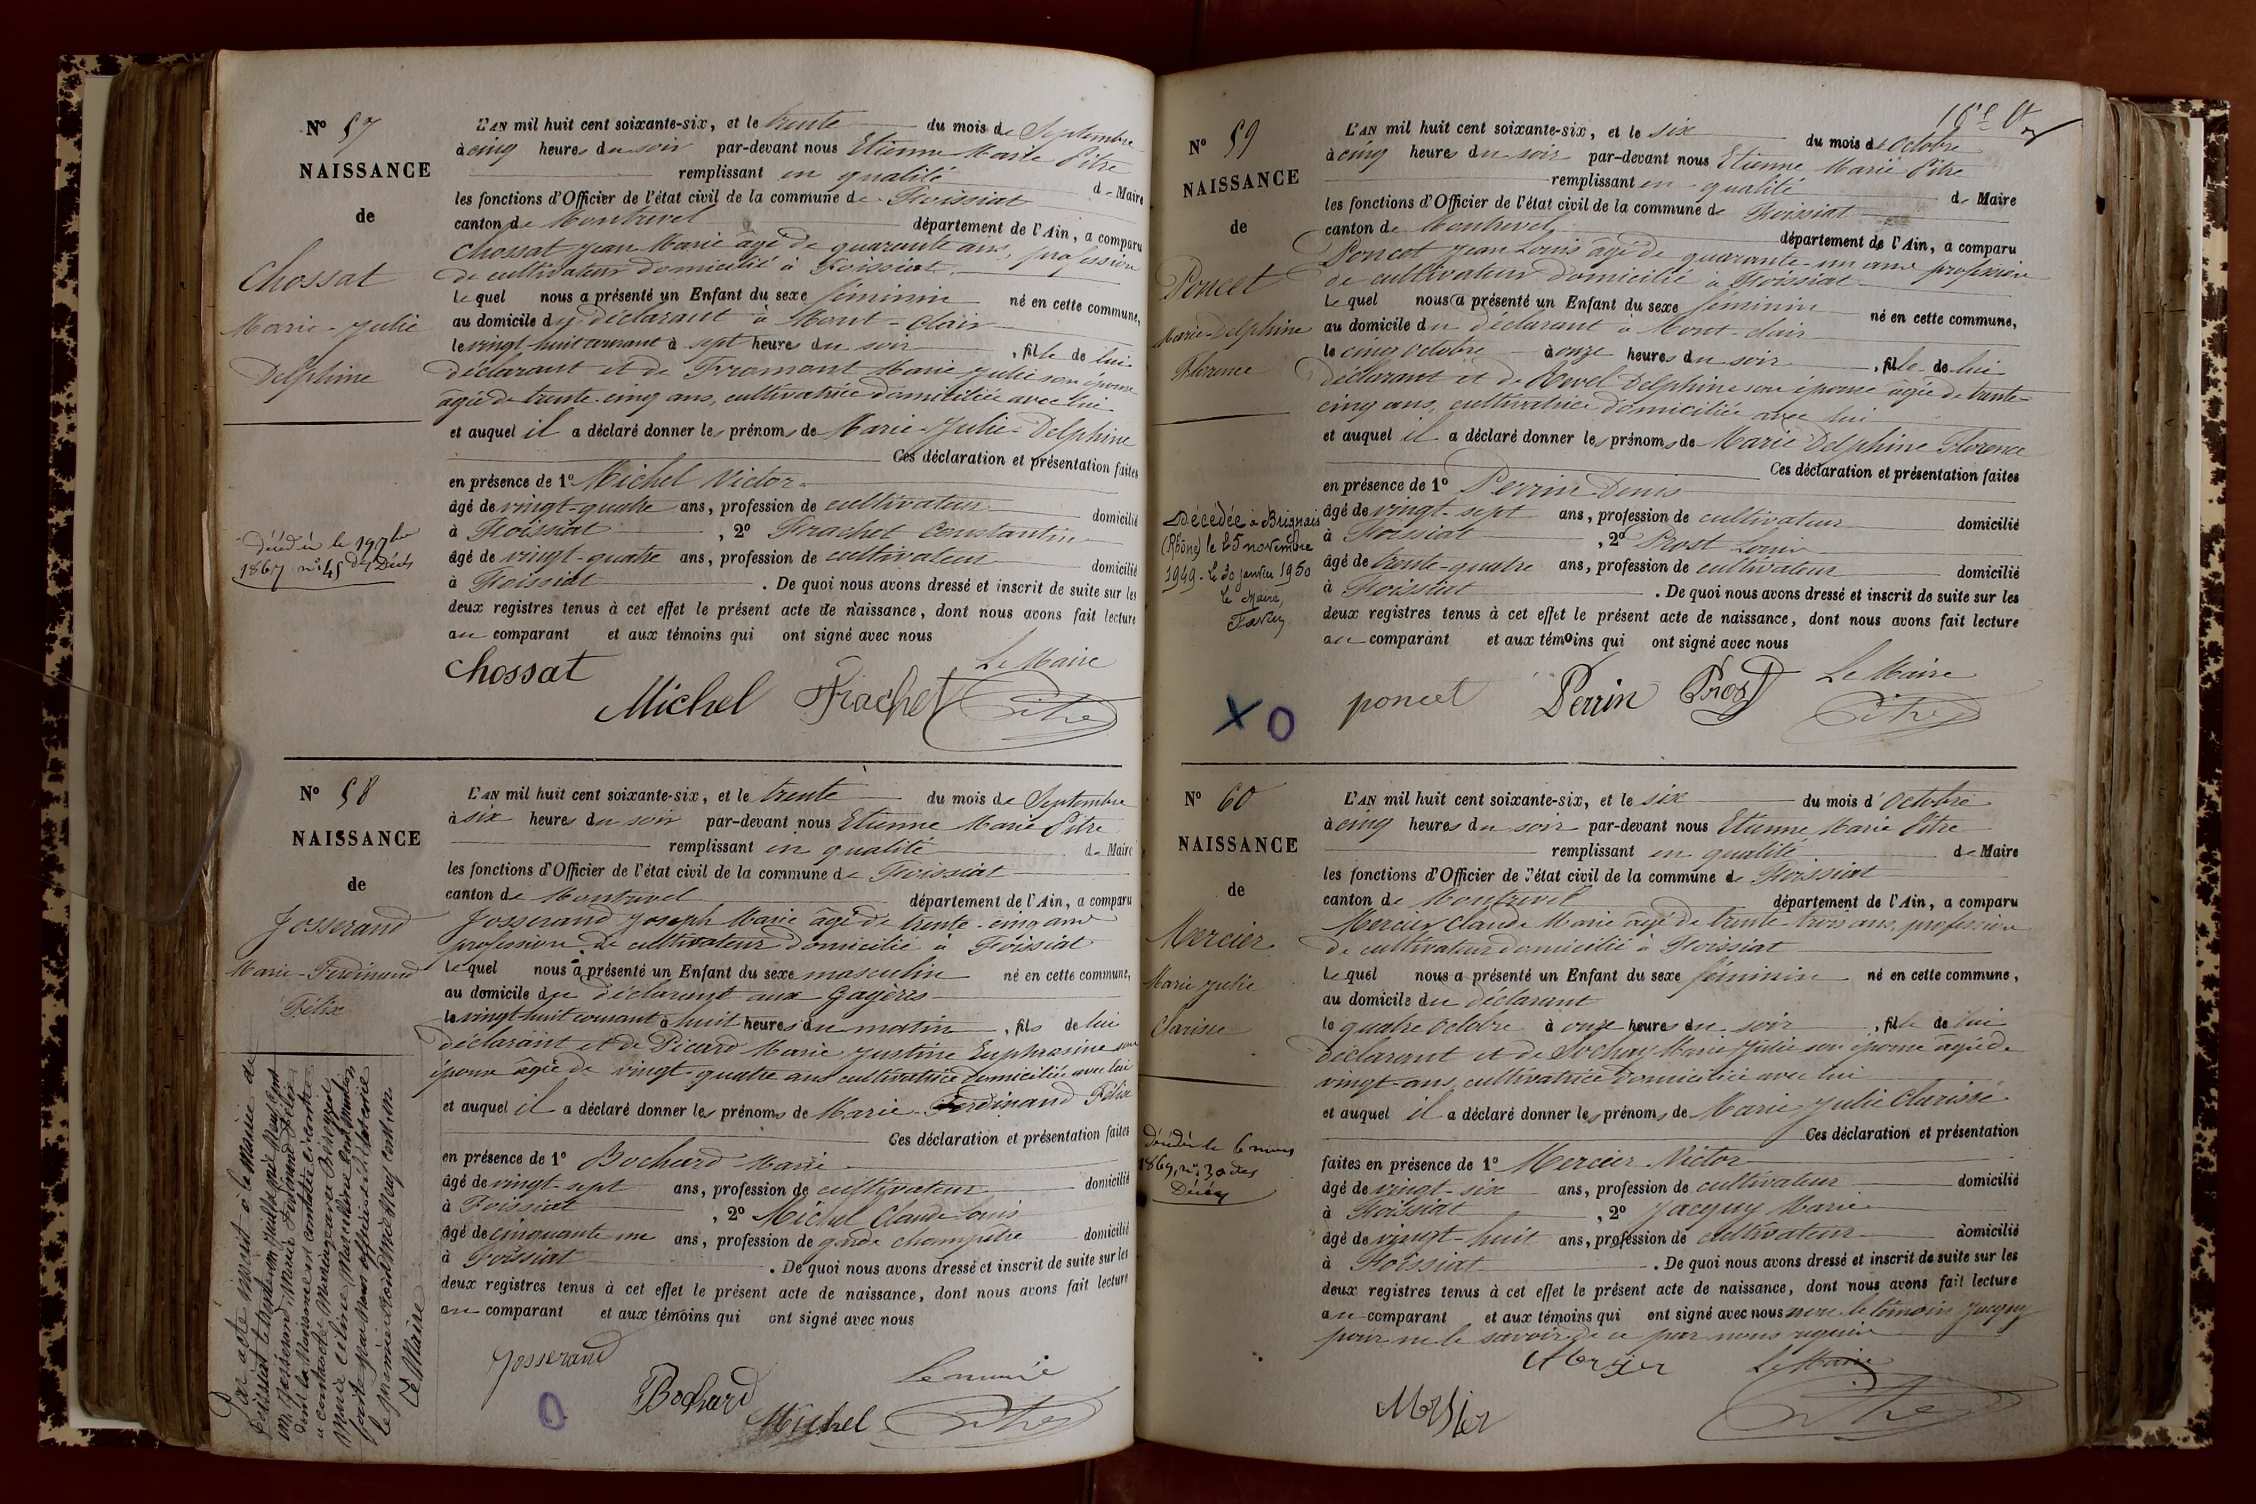 Nº 57
NAISSANCE
de
Chossat
Marie-Julie
Delphine
décédée le 19 7bre
1867 nº 45 des Décès
L'AN mil huit cent soixante-six, et le trente du mois de Septembre
à cinq heures du soir par-devant nous Etienne Marie Pitre
remplissant en qualité de Maire
les fonctions d'Officier de l'état civil de la commune de Foissiat
canton de Montrevel département de l'Ain, a comparu
Chossat Jean Marie âgé de quarante ans, profession
de cultivateur domicilié à Foissiat
Lequel nous a présenté un Enfant du sexe féminin né en cette commune,
au domicile du déclarant à Mont-clair
le vingt-huit courant à sept heures du soir, fille de lui
déclarant et de Fromont Marie Julie son épouse
âgée de trente-cinq ans, cultivatrice domiciliée avec lui
et auquel il a déclaré donner les prénoms de Marie-Julie-Delphine
Ces déclaration et présentation faites
en présence de 1º Michel Victor
âgé de vingt-quatre ans, profession de cultivateur domicilié
à Foissiat, 2º Frachet Constantin
âgé de vingt-quatre ans, profession de cultivateur domicilié
à Foissiat. De quoi nous avons dressé et inscrit de suite sur les
deux registres tenus à cet effet le présent acte de naissance, dont nous avons fait lecture
au comparant et aux témoins qui ont signé avec nous
Le Maire
Chossat
Michel Frachet Pitre
Nº 58
NAISSANCE
de
Josserand
Marie-Ferdinand
Félix
Par acte inscrit à la mairie de
Foissiat le trente un juillet mil neuf cent
un Josserand Marie Ferdinand Félix
dont la naissance est constatée ci-contre
a contracté mariage avec
Marie Céline Marcelline
Le Maire
L'AN mil huit cent soixante-six, et le trente du mois de Septembre
à six heures du soir par-devant nous Etienne Marie Pitre
remplissant en qualité de Maire
les fonctions d'Officier de l'état civil de la commune de Foissiat
canton de Montrevel département de l'Ain, a comparu
Josserand Joseph Marie âgé de trente-cinq ans
profession de cultivateur domicilié à Foissiat
Lequel nous a présenté un Enfant du sexe masculin né en cette commune,
au domicile du déclarant aux Gagères
le vingt-huit courant à huit heures du matin, fils de lui
déclarant et de Picard Marie Justine Euphrasine son
épouse âgée de vingt-quatre ans cultivatrice domiciliée avec lui
et auquel il a déclaré donner les prénoms de Marie-Ferdinand Félix
Ces déclaration et présentation faites
en présence de 1º Bochard Marie
âgé de vingt-sept ans, profession de cultivateur domicilié
à Foissiat, 2º Michel Claude Louis
âgé de cinquante un ans, profession de garde champêtre domicilié
à Foissiat. De quoi nous avons dressé et inscrit de suite sur les
deux registres tenus à cet effet le présent acte de naissance, dont nous avons fait lecture
au comparant et aux témoins qui ont signé avec nous
Josserand Le maire
Bochard
Michel Pitre
Nº 59
NAISSANCE
de
Poncet
Marie-Delphine
Florence
Décédée à Brignais
(Rhône) le 25 novembre
1949 - Le 30 janvier 1950
Le Maire,
L'AN mil huit cent soixante-six, et le six du mois d'Octobre
à cinq heures du soir par-devant nous Etienne Marie Pitre
remplissant en qualité de Maire
les fonctions d'Officier de l'état civil de la commune de Foissiat
canton de Montrevel département de l'Ain, a comparu
Poncet Jean Louis âgé de quarante-un ans profession
de cultivateur domicilié à Foissiat
Lequel nous a présenté un Enfant du sexe féminin né en cette commune,
au domicile du déclarant à Mont-clair
le cinq Octobre à onze heures du soir, fille de lui
déclarant et de Revel Delphine son épouse âgée de trente-
cinq ans, cultivatrice domiciliée avec lui
et auquel il a déclaré donner les prénoms de Marie Delphine Florence
Ces déclaration et présentation faites
en présence de 1º Perrin Denis
âgé de vingt-sept ans, profession de cultivateur domicilié
à Foissiat, 2º Prost Louis
âgé de trente-quatre ans, profession de cultivateur domicilié
à Foissiat. De quoi nous avons dressé et inscrit de suite sur les
deux registres tenus à cet effet le présent acte de naissance, dont nous avons fait lecture
au comparant et aux témoins qui ont signé avec nous
Le Maire
poncet Perrin Prost Pitre
X O
Nº 60
NAISSANCE
de
Mercier
Marie Julie
Clarisse
Décédée le 6 mars
1869, nº 30 des
Décès
L'AN mil huit cent soixante-six, et le six du mois d'Octobre
à cinq heures du soir par-devant nous Etienne Marie Pitre
remplissant en qualité de Maire
les fonctions d'Officier de l'état civil de la commune de Foissiat
canton de Montrevel département de l'Ain, a comparu
Mercier Claude Marie âgé de trente-trois ans, profession
de cultivateur domicilié à Foissiat
Lequel nous a présenté un Enfant du sexe féminin né en cette commune,
au domicile du déclarant
le quatre Octobre à onze heures du soir, fille de lui
déclarant et de Sochay Marie Julie son épouse âgée de
vingt-ans, cultivatrice domiciliée avec lui
et auquel il a déclaré donner les prénoms de Marie Julie Clarisse
Ces déclaration et présentation
faites en présence de 1º Mercier Victor
âgé de vingt-six ans, profession de cultivateur domicilié
à Foissiat, 2º Jacquy Marie
âgé de vingt-huit ans, profession de cultivateur domicilié
à Foissiat. De quoi nous avons dressé et inscrit de suite sur les
deux registres tenus à cet effet le présent acte de naissance, dont nous avons fait lecture
au comparant et aux témoins qui ont signé avec nous non le témoin Jacquy
pour ne le savoir de ce par nous requis
Mercier Le Maire
Mercier Pitre